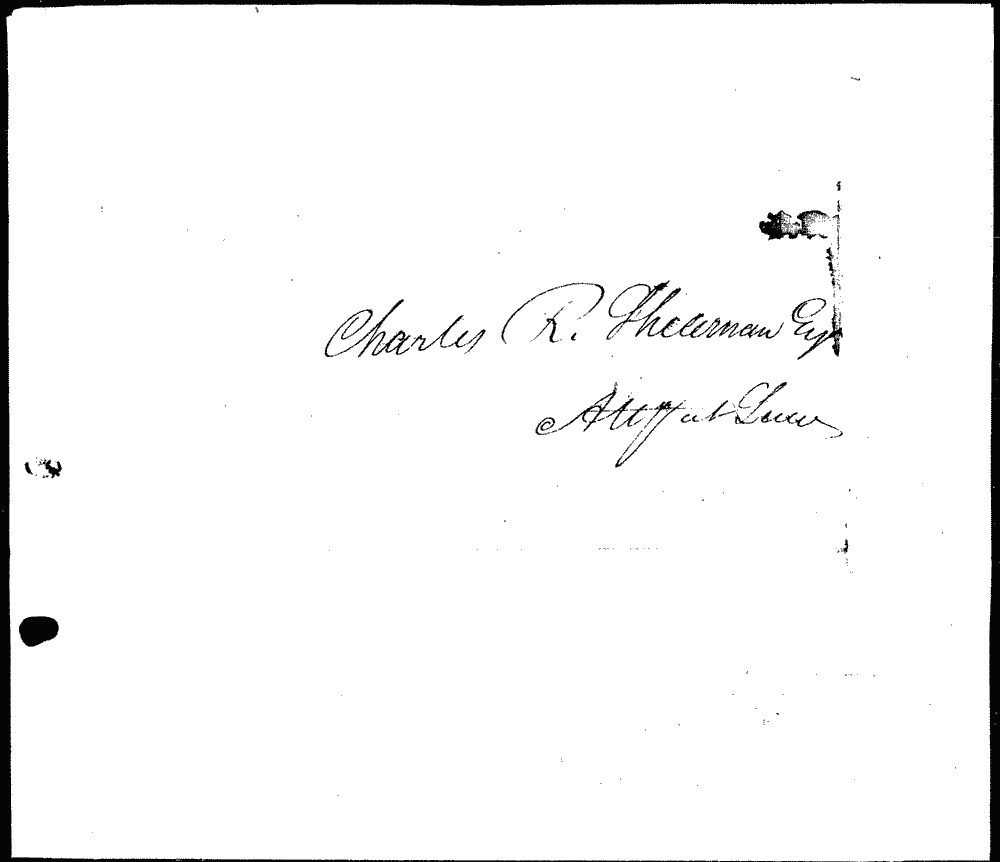 Charles R. Sherman Esq
Atty at Law